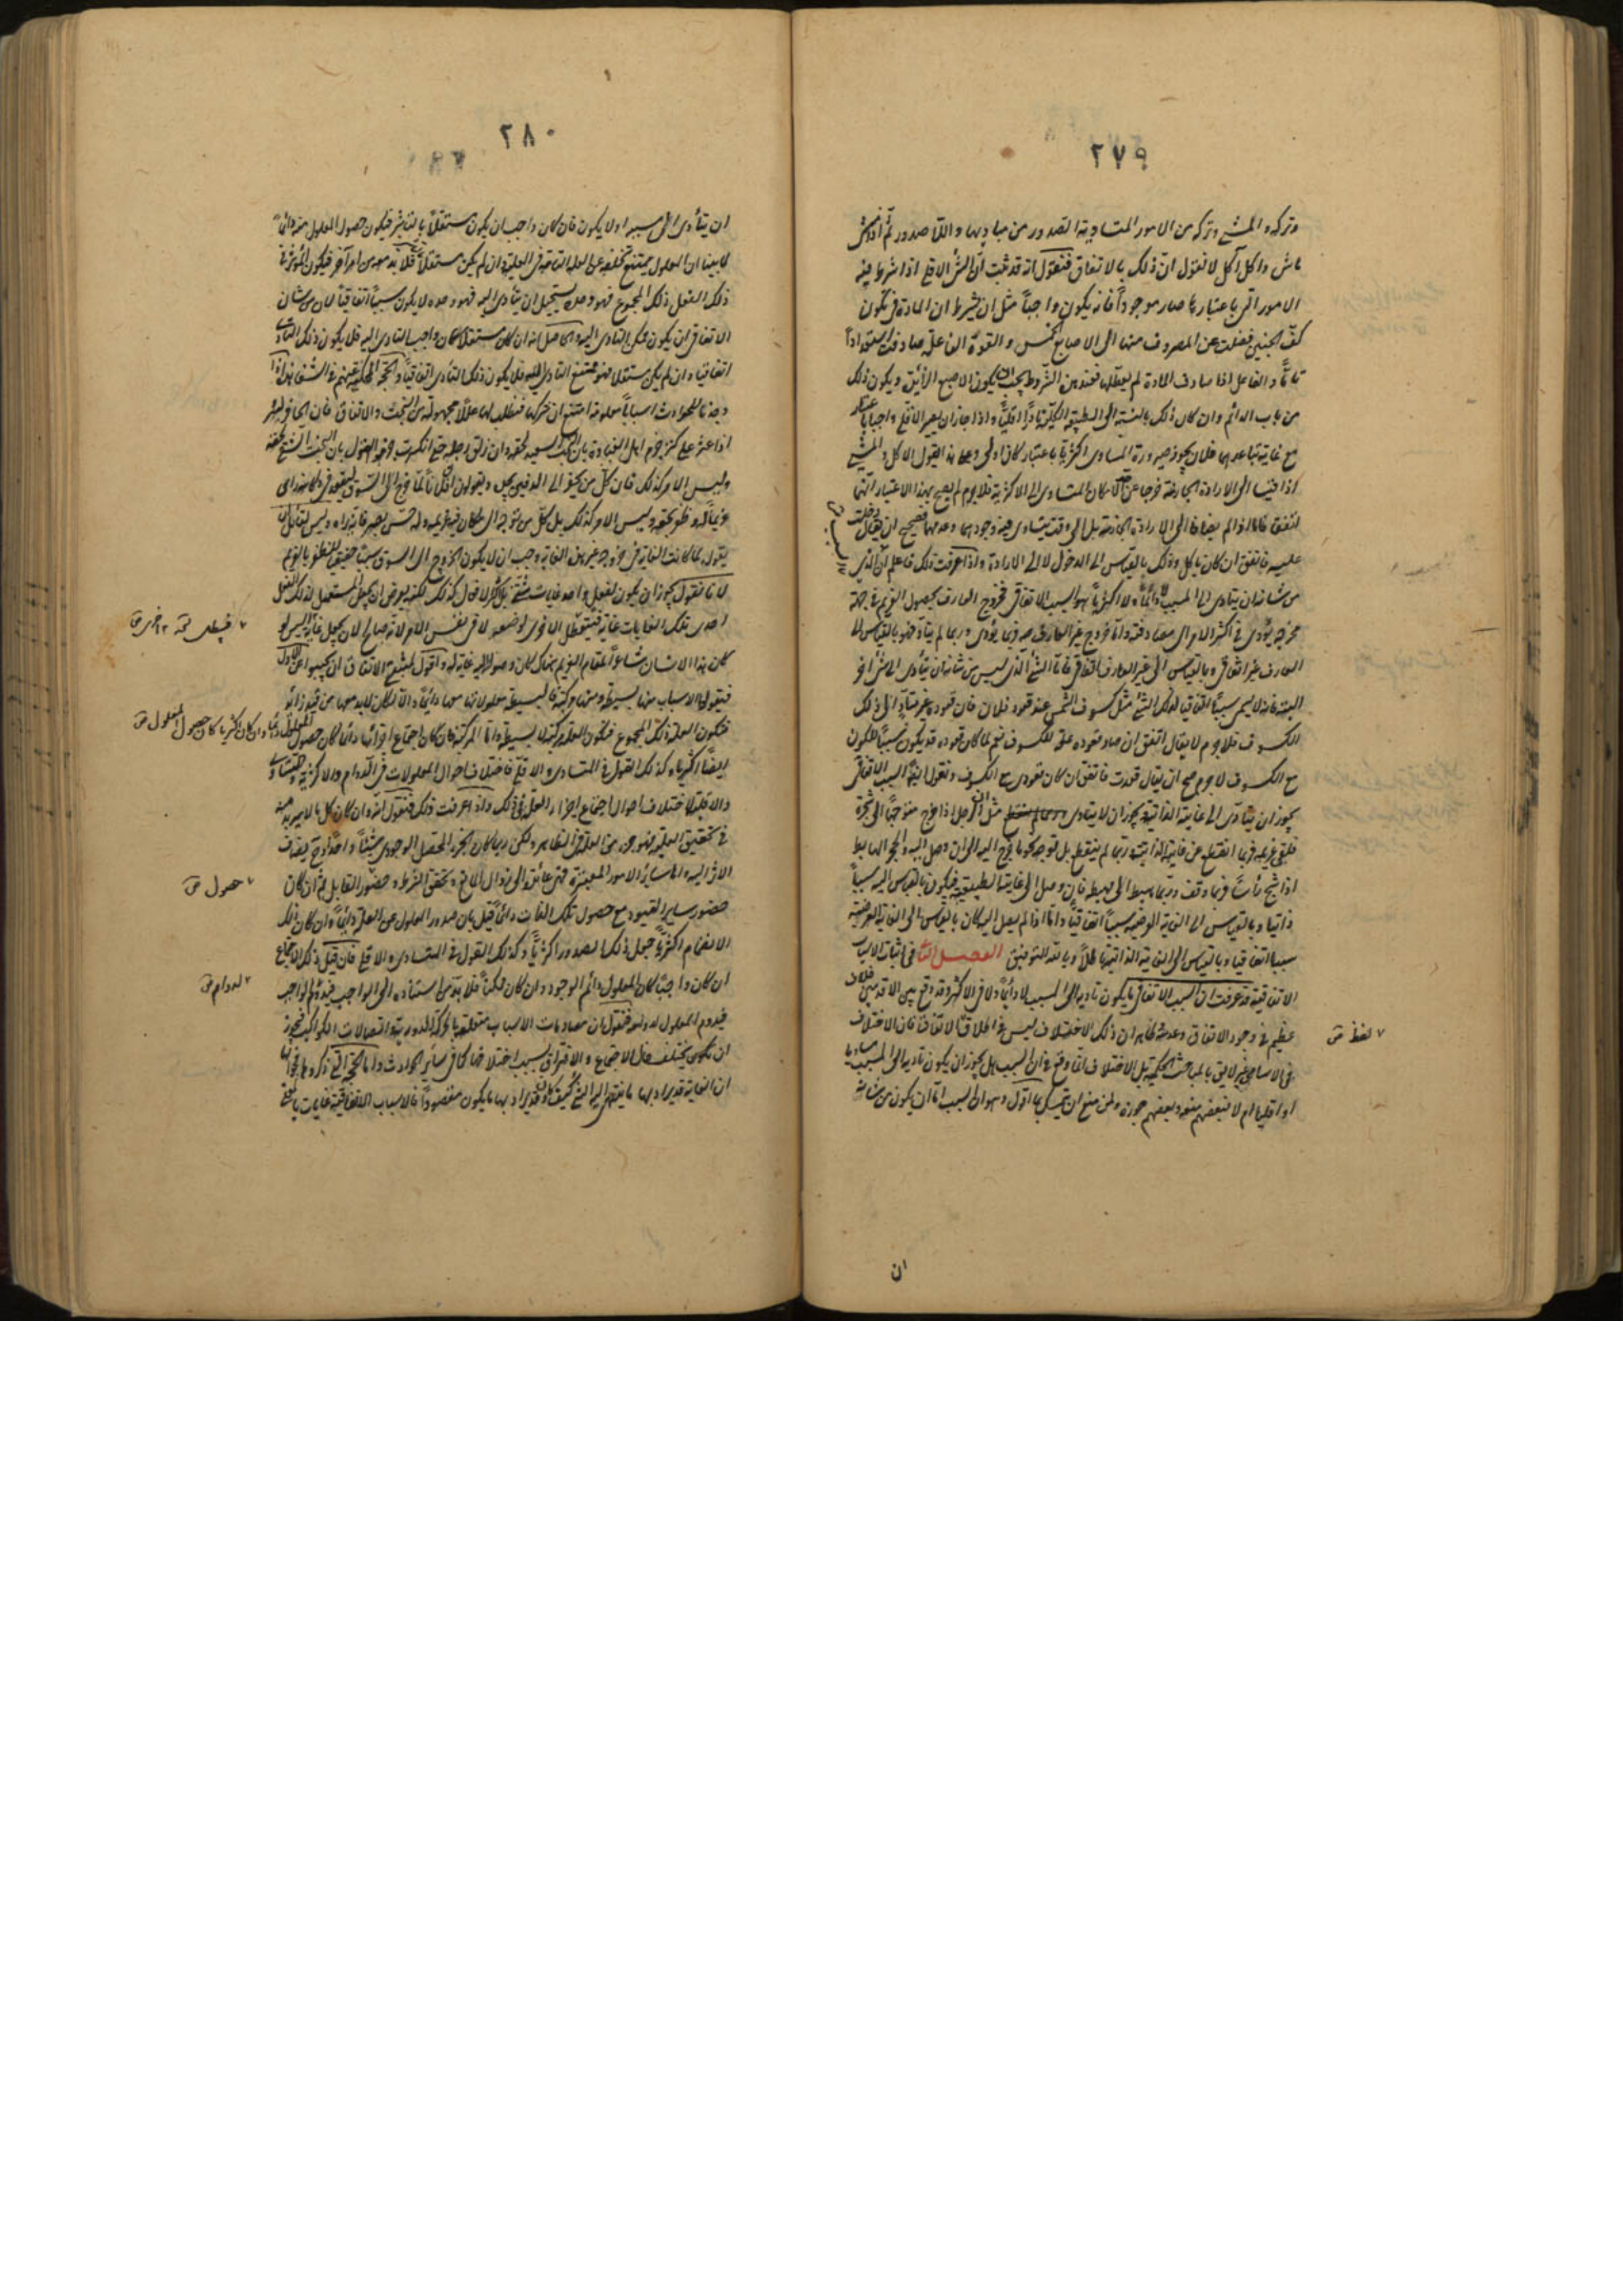 ٢٧٩
وتركه والمشى وتركه من الامور المتساوية الصدور عن مباديها واللا صدور ثم اذا مشى
ماش واكل آكل لا نقول ان ذلك بالاتفاق فنقول انه قد ثبت ان الشئ الاقلى اذا شرط فيه
الامور التى باعتبارها صار موجوداً فانه يكون واجباً مثل ان يشرط ان المادة فى تكون
كف الجنين فضلت عن المصروف منها الى الاصابع الخمس والقوة الفاعلة صادفت استعداداً
تاماً والفاعل اذا صادف المادة لم يعطلها فعند هذه الشروط يجب ان يكون الاصبع الزائد ويكون ذلك
من باب الدائم وان كان ذلك بالنسبة الى الطبيعة الكلية نادراً اقلياً واذا جاز ان يصير الاقلى واجباً باعتبار
مع غاية تباعدهما فلان يجوز صيرورة المساوى اكثرياً باعتبار كان اولى وعلى هذا القول الاكل والمشى
اذا قيسا الى الارادة الجازمة خرجا عن حد الامكان المتساوى الى الاكثرية فلا جرم لم يصح بهذا الاعتبار انهما
اتفقا فاما اذا لم يضافا الى الارادة الجازمة بل الى وقت يتساوى فيه وجودهما وعدمهما فصحيح ان يقال دخلت
عليه فاتفق ان كان ياكل وذلك بالقياس الى الدخول لا الى الارادة واذا عرفت ذلك فاعلم ان الذى
من شانه ان يتادى الى المسبب لا دائماً ولا اكثرياً هو السبب الاتفاقى فخروج العارف بحصول الغريم فى جهة
مخرجه يؤدى فى اكثر الامر الى مصادفته واما خروج غير العارف به فربما يؤدى وربما لم يتأد فهو بالقياس الى
العارف غير اتفاقى وبالقياس الى غير العارف اتفاقى فاما الشئ الذى ليس من شانه ان يتأدى الى شئ آخر
البتة فانه لا يسمى سبباً اتفاقياً لذلك الشئ مثل كسوف الشمس عند قعود فلان فان قعوده غير متأد الى ذلك
الكسوف فلا جرم لا يقال اتفق ان صار قعوده علة للكسوف نعم لما كان قعوده قد يكون سبباً للكون
مع الكسوف لا جرم صح ان يقال قعدت فاتفق ان كان قعودى مع الكسوف ونقول ايضاً السبب الاتفاقى
يجوز ان يتأدى الى غايته الذاتية ويجوز ان لا يتأدى مثل ان الرجل اذا خرج متوجهاً الى متجره
فلقى غريمه فربما انقطع عن غايته الذاتية وربما لم ينقطع بل توجه نحو ما خرج اليه الى ان وصل اليه والحجر الهابط
اذا شج رأساً فربما وقف وربما هبط الى مهبطه فان وصل الى غايته الطبيعية فيكون بالقياس اليه سبباً
ذاتياً وبالقياس الى الغاية العرضية سبباً اتفاقياً واما اذا لم يصل اليه كان بالقياس الى الغاية العرضية
سبباً اتفاقياً وبالقياس الى الغاية الذاتية باطلاً وبالله التوفيق الفصل فى اثبات الاسباب
الاتفاقية قد عرفت ان السبب الاتفاقى ما يكون تاديه الى المسبب لا دائماً ولا فى الاكثر وقد وقع بين الاقدمين خلاف
عظيم فى وجود الاتفاق وعدمه فظاهر ان ذلك الاختلاف ليس فى اطلاق الاتفاق فان الاختلاف
فى الاسامى غير لايق بالمباحث الحكمية بل الاختلاف انما وقع فى ان السبب هل يجوز ان يكون تاديه الى المسبب مساوياً
او اقلياً ام لا فبعضهم منعه وبعضهم جوزه ولمن منع ان يتمسك بما اقول وهو ان السبب اما ان يكون من شانه
لفظ ق
ان
٢٨٠
ان يتأدى الى مسببه او لا يكون فان كان واجب ان يكون مستقلاً بالتأثير فيكون حصول المعلول منه دائماً
لما بينا ان المعلول يمتنع تخلفه عن العلة التامة فى العلية وان لم يكن مستقلاً فلا بد معه من امر آخر فيكون المؤثر فى
ذلك الفعل ذلك المجموع فهو وحده يستحيل ان يتأدى اليه فهو وحده لا يكون سبباً اتفاقياً لان من شان
الاتفاقى ان يكون ممكن التأدى اليه والحاصل انه ان كان مستقلاً كان واجب التادى اليه فلا يكون ذلك التأدى
اتفاقياً وان لم يكن مستقلاً فهو ممتنع التأدى اليه فلا يكون ذلك التأدى اتفاقياً والحجة المحكية عنهم فى الشفا انه اذا
وجدنا للحوادث اسباباً معلومة امتنع ان نتركها فنطلب لها عللاً مجهولة من البخت والاتفاق فان الحافر لبئر
اذا عثر على كنز جزم اهل الغباوة بان البخت السعيد لحقه وان زلق رجله حتى انكسرت جزموا القول بان البخت الشقى لحقه
وليس الامر كذلك فان كل من يحفر الى الدفين يجده ويقولون ان فلاناً لما خرج الى السوق ليقعد فى دكانه رأى
غريماً له وظفر بحقه وليس الامر كذلك بل كل من توجه الى مكان فيه غريمه وله حس بصير فانه يراه وليس لقائل ان
يقول لما كانت الغاية فى خروجه غير هذه الغاية وجب ان لا يكون الخروج الى السوق سبباً حقيقياً للظفر بالغريم
لانا نقول يجوز ان يكون لفعل واحد غايات شتى بل اكثر الافعال كذلك لكنه يعرض ان يجعل المستعمل لذلك الفعل
احدى تلك الغايات غاية فيتعطل الاخرى بوضعه لا فى نفس الامر لانه صالح لان يجعل غاية اليس لو
كان هذا الانسان شاعراً بمقام الغريم هناك لكان وصوله اليه غاية له واقول لمثبتى الاتفاق ان يجيبوا عن الاول
فيقولوا الاسباب منها بسيطة ومنها مركبة فالبسيطة معلولاتها معها دائماً والا لكان لا بد معها من قيد زايد
فتكون العلة ذلك المجموع فتكون العلة مركبة لا بسيطة واما المركبة فان كان اجتماع اجزائها دائماً كان حصول المعلول دائماً وان كان اكثرياً كان حصول المعلول ق
ايضاً اكثرياً وكذلك القول فى المتساوى والاقلى فاختلاف احوال المعلولات فى الدوام والاكثرية والتساوى
والاقلية لاختلاف احوال اجتماع اجزاء العلل فى ذلك واذا عرفت ذلك فنقول انه وان كان كل ما لا بد منه
فى تحقيق العلية فهو جزء من العلة فى الظاهر ولكن ربما كان الجزء المحصل الوجودى شيئاً واحداً ثم يضاف
الاثر اليه واما سائر الامور المعتبرة فهى عائدة الى زوال المانع وتحقق الشرط وحضور القابل ثم ان كان
حضور سائر القيود مع حصول تلك الذات دائماً قيل بان صدور المعلول عن العلة دائماً وان كان ذلك
الانضمام اكثرياً جعل ذلك الصدور اكثرياً وكذلك القول فى المتساوى والاقلى فان قيل ذلك الاجتماع
ان كان واجباً كان المعلول دائم الوجود وان كان ممكناً فلا بد من استناده الى الواجب فيدوم لدوام الواجب
فيدوم المعلول لدوامه فنقول ان مصادمات الاسباب متعلقة بالحركة الدورية واتصالات الكواكب فيجوز
ان يكون يختلف حال الاجتماع والافتراق بسبب اختلافها كما فى سائر الحوادث واما الحجة التى ذكروها فجوابها
ان الغاية قد يراد بها ما ينتهى اليه الشئ كيف كان وقد يراد بها ما يكون مقصوداً فالاسباب الاتفاقية غايات بالمعنى
حصول ق
لدوام ق